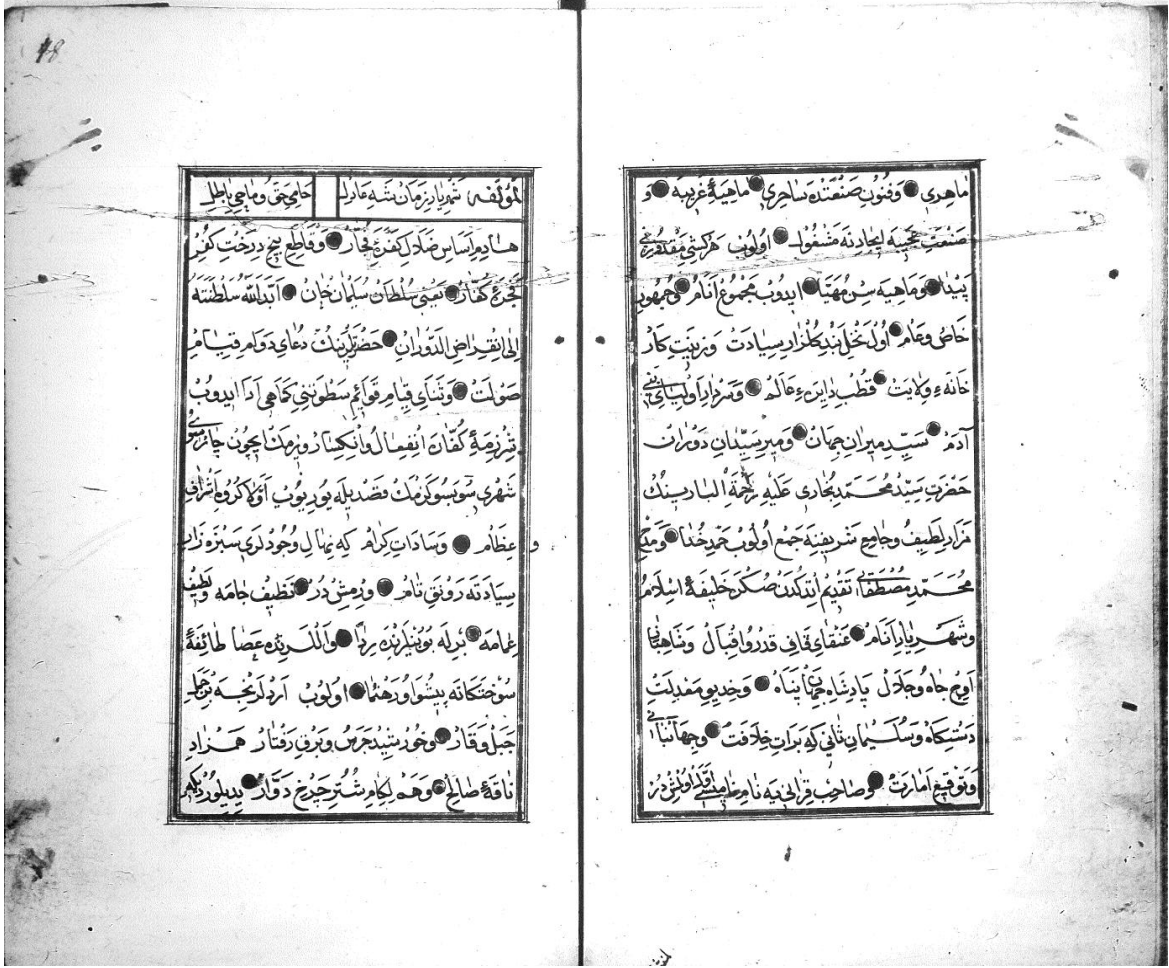 ماهری ● وفنون صنعتده ساحری ● ماهیهٔ غریبه ● و
صنعت عجیبه ایجادنه مشغول ● اولوب هر کشی مقدورینی
پیدا ● وماهیه سن مهیا ● ایدوب مجموع انام ● وجمهور
خاص وعام ● اول نخل بند گلزار سیادت وزینت کار
خانهٔ ولایت ● قطب دایرهٔ عالم ● وسردار اولیای بنی
آدم ● سید میران جهان ● ومیر سیدان دوران
حضرت سید محمد بخاری علیه رحمة الباری سینك
مزار لطیف وجامع شریفنه جمع اولوب حمد خدا ● ومدح
محمد مصطفایی تقدیم اتدكدن صكره خلیفهٔ اسلام
وشهریار انام ● عنقای قاف قدر واقبال وشاهباز
اوج جاه وجلال پادشاه جهان پناه ● وخدیو معدلت
دستكاه وسلیمان ثانی كه برات خلافت ● وجهانبانی
وتوقیع امارت ● وصاحب قرانی یه نام نامیسی اولمش در
48
لمؤلفه شهریار زمان شه عادل حامی حق وماحی باطل
هادم اساس ضلال كفرهٔ فجار ● وقاطع بیخ درخت كفر
فجرهٔ كفار ● یعنی سلطان سلیمان خان ● ابد الله سلطنته
الی انقراض الدوران ● حضرتلرینك دعای دوام قیام
صولت ● وثنای قیام قوائم سطوتنی كماهی ادا ایدوب
كفاره انفعال وانكسار ویرمك ایچون
شهری سو بسو كزمك قصدیله یوریوب اولا كروه اشراف
وعظام ● وسادات كرام كه نهال وجودلری سبزه زار
سیادته رونق تام ● ویرمش در ● نظیف جامه ولطیف
عمامه ● برله بوینلرنده ردا ● واللرنده عصا طائفهٔ
سوختكانه پیشوا ورهنما ● اولوب اردلرنجه
جبل وقار ● وخورشید جرس وبرق رفتار همزاد
ناقهٔ صالح ● وهم لكام شتر چرخ دوار ●